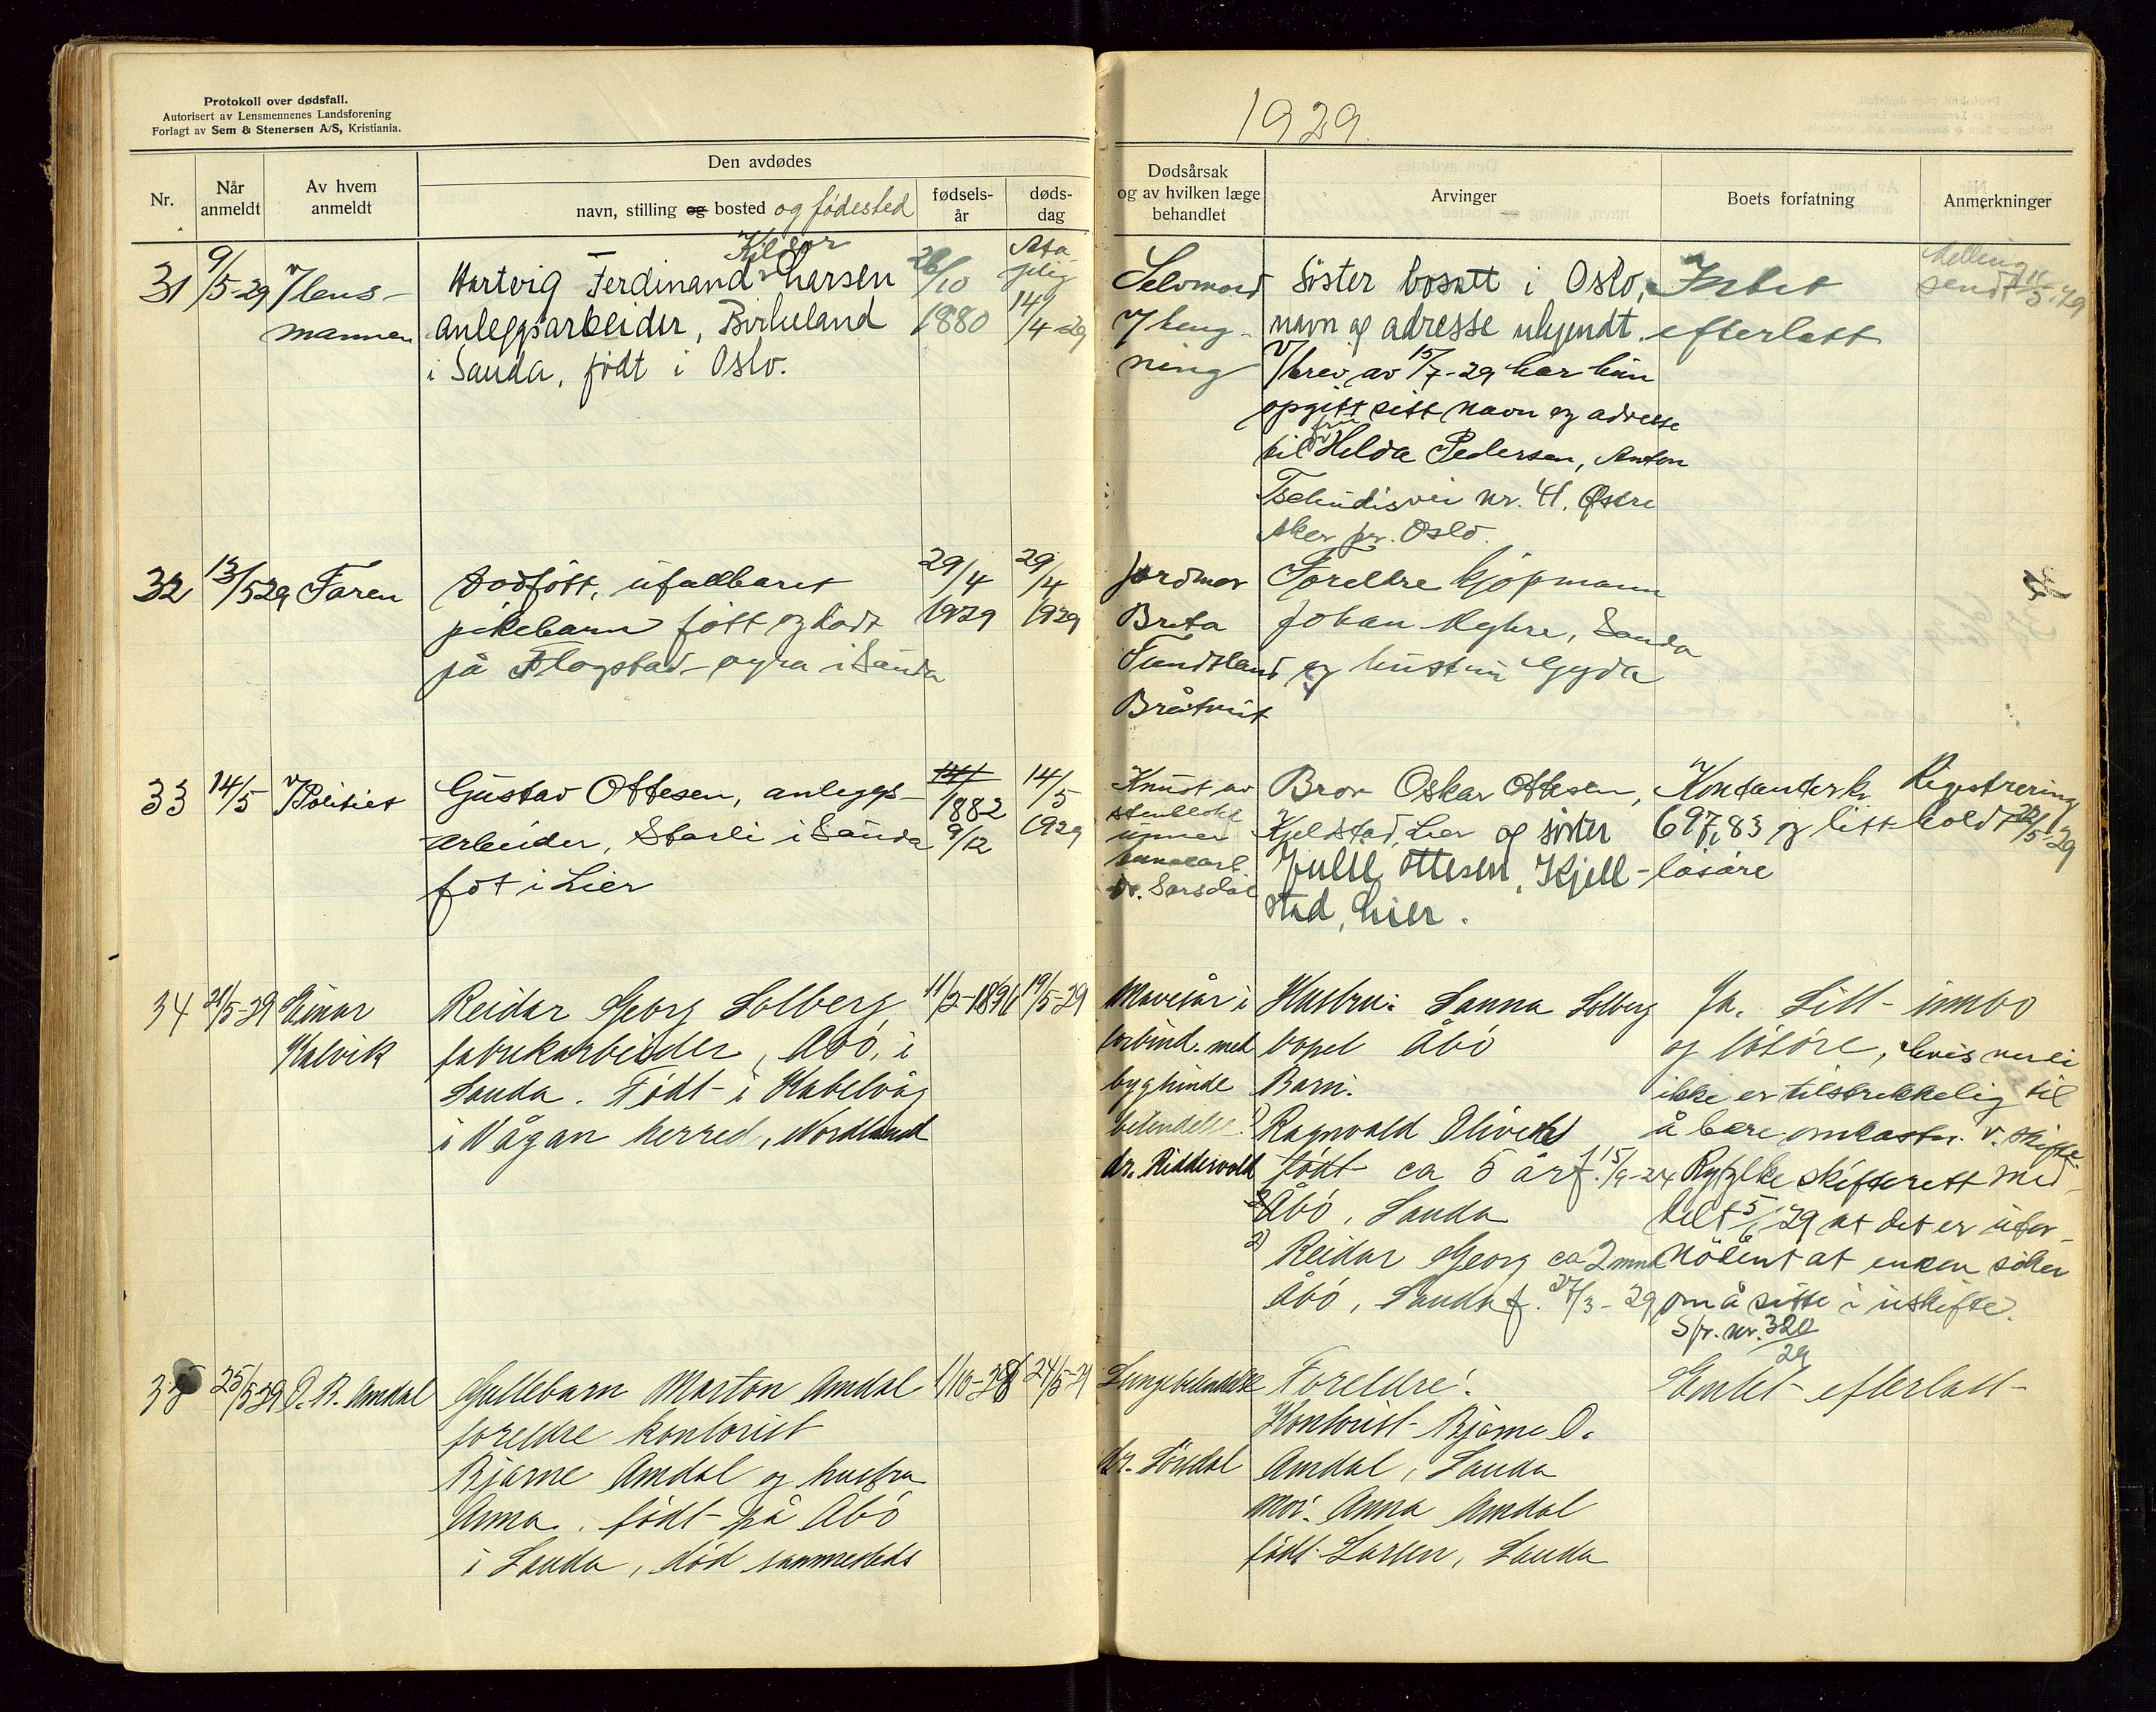 Protokoll over dødsfall.
Autorisert av Lensmennenes Landsforening
Forlagt av Sem & Stenersen A/S, Kristiania.
Nr.
Når anmeldt
Av hvem anmeldt
Den avdødes
navn, stilling og bosted og fødested
fødsels-år
døds-dag
31
9/5-29
v/lens-
mannen
Hartvig Ferdinand Larsen
anleggsarbeider, Birkeland
i Sauda, født i Oslo.
26/10
1880
14/4-29
32
13/5 29
Faren
Dødfött, ufullbaret
pikebarn fött og död
på Flogstad - øyra i Sauda
29/4
1929
29/4
1929
33
14/5
v/Politiet
Gustav Ottesen, anleggs-
arbeider, Starli i Sauda
föt i Lier
14/
1882
9/12
14/5
1929
34
21/5-29
Einar
Kalvik
Reidar Georg Solberg,
fabrikarbeider, Åbö, i
Sauda. Født i Kabelvåg
i Vågan herred, Nordland
11/2-1896
19/5-29
35
25/5 29
O. R. Amdal
Guttebarn Marton Amdal
foreldre kontorist
Bjarne Amdal og hustru
Anna. født på Åbö
i Sauda, død sammesteds
1/10-28
24/5-29
1929.
Dødsårsak
og av hvilken læge
behandlet
Arvinger
Boets forfatning
Anmerkninger
Selvmord
v/heng-
ning
Söster bosatt i Oslo,
navn og adresse ukjendt.
V/brev av 15/7-29 har hun
opgitt sitt navn og adresse
til fru Helda Pedersen, Anton
Tschudisvei nr. 41, Østre
Aker pr. Oslo.
Intet
efterlatt
Melding
sendt 15/5.29
Jordmor
Brita
Tundtland
Bråtveit
Foreldre kjöpmann
Johan Myhre, Sauda
og hustru Gyda
Knust av
stenblokk
dr. Sørsdal
Bror Oskar Ottesen,
Kjelstad, Lier og söster
Julle Ottesen, Kjell-
stad, Lier.
Kontanter kr
697,83 og litt
lösöre
Registrering
holdt 22/5-29
Mavesår i
forbind. med
byghinde
betendelse.
dr. Riddervold
Hustru: Sanna Solberg
bopel Åbö
Barn:
1) Ragnvald Oliver
født ca 5 år f. 15/9-24
Åbö, Sauda
2) Reidar Georg ca 2 mnd
Åbö, Sauda f. 27/3-29
Ja. Litt innbo
og lösöre, hvis verdi
ikke er tilstrekkelig til
å bære omkostn. v. skifte.
Ryfylke skifterett med-
delt 5/6 29 at det er ufor-
nödent at enken söker
om å sitte i uskifte.
S/r. nr. 320/29
Lungebetendelse
dr. Sörsdal
Foreldre:
Kontorist Bjarne O.
Amdal, Sauda
Mor: Anna Amdal
født Larsen, Sauda
Intet efterlatt